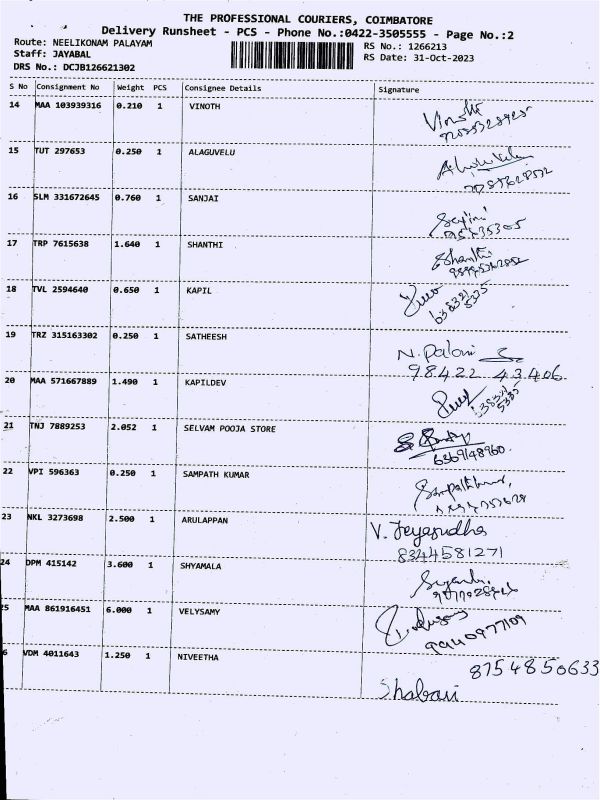 THE PROFESSIONAL COURIERS, COIMBATORE
Delivery Runsheet - PCS - Phone No.:0422-3505555 - Page No.:2
Route: NEELIKONAM PALAYAM
Staff: JAYABAL
DRS No.: DCJB126621302
RS No.: 1266213
RS Date: 31-Oct-2023
S No Consignment No Weight PCS Consignee Details Signature
14 MAA 103939316 0.210 1 VINOTH Vinoth
15 TUT 297653 0.250 1 ALAGUVELU
16 SLM 331672645 0.760 1 SANJAI
17 TRP 7615638 1.640 1 SHANTHI Shanthi
18 TVL 2594640 0.650 1 KAPIL
6383215335
19 TRZ 315163302 0.250 1 SATHEESH N. Palani
98422 43406
20 MAA 571667889 1.490 1 KAPILDEV
6383215335
21 TNJ 7889253 2.052 1 SELVAM POOJA STORE
6369148960
22 VPI 596363 0.250 1 SAMPATH KUMAR Sampathkumar
23 NKL 3273698 2.500 1 ARULAPPAN V. Jeyasudha
8344581271
24 DPM 415142 3.600 1 SHYAMALA
25 MAA 861916451 6.000 1 VELYSAMY
9940977109
6 VDM 4011643 1.250 1 NIVEETHA 8754850633
Shabari